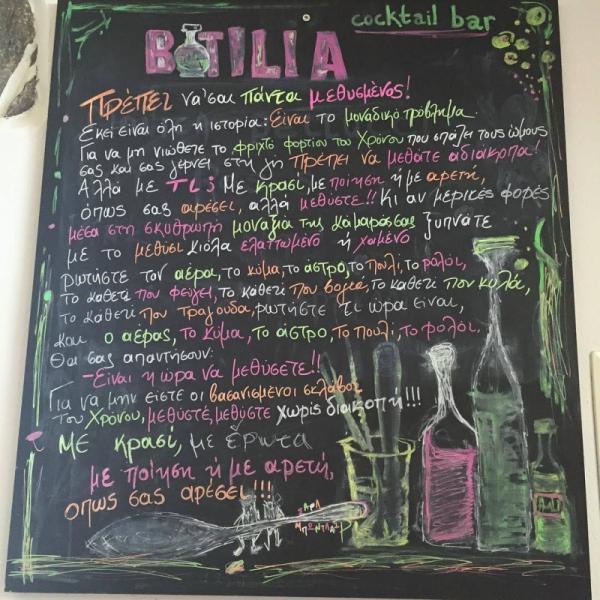 cocktail bar
BOTILIA
Πρέπει να 'σαι πάντα μεθυσμένος!
Εκεί είναι όλη η ιστορία: Είναι το μοναδικό πρόβλημα.
Για να μη νιώθετε το φριχτό φορτίο του Χρόνου που σπάζει τους ώμους
σας και σας γέρνει στη γη πρέπει να μεθάτε αδιάκοπα!
Αλλά με τι; Με κρασί, με ποίηση ή με αρετή,
όπως σας αρέσει, αλλά μεθύστε!! Κι αν μερικές φορές
μέσα στη σκυθρωπή μοναξιά της κάμαράς σας ξυπνάτε
με το μεθύσι κιόλα ελαττωμένο ή χαμένο
ρωτήστε τον αέρα, το κύμα, το άστρο, το πουλί, το ρολόι,
το καθετί που φεύγει, το καθετί που βογκά, το καθετί που κυλάει,
το καθετί που τραγουδά, ρωτήστε τι ώρα είναι,
και ο αέρας, το κύμα, το άστρο, το πουλί, το ρολόι,
θα σας απαντήσουν:
-Είναι η ώρα να μεθύσετε!!
Για να μην είστε οι βασανισμένοι σκλάβοι
του Χρόνου, μεθύστε, μεθύστε χωρίς διακοπή!!!
Με κρασί, με έρωτα
με ποίηση ή με αρετή,
όπως σας αρέσει!!!
ΣΑΡΛ
ΜΠΩΝΤΛΑΙΡ